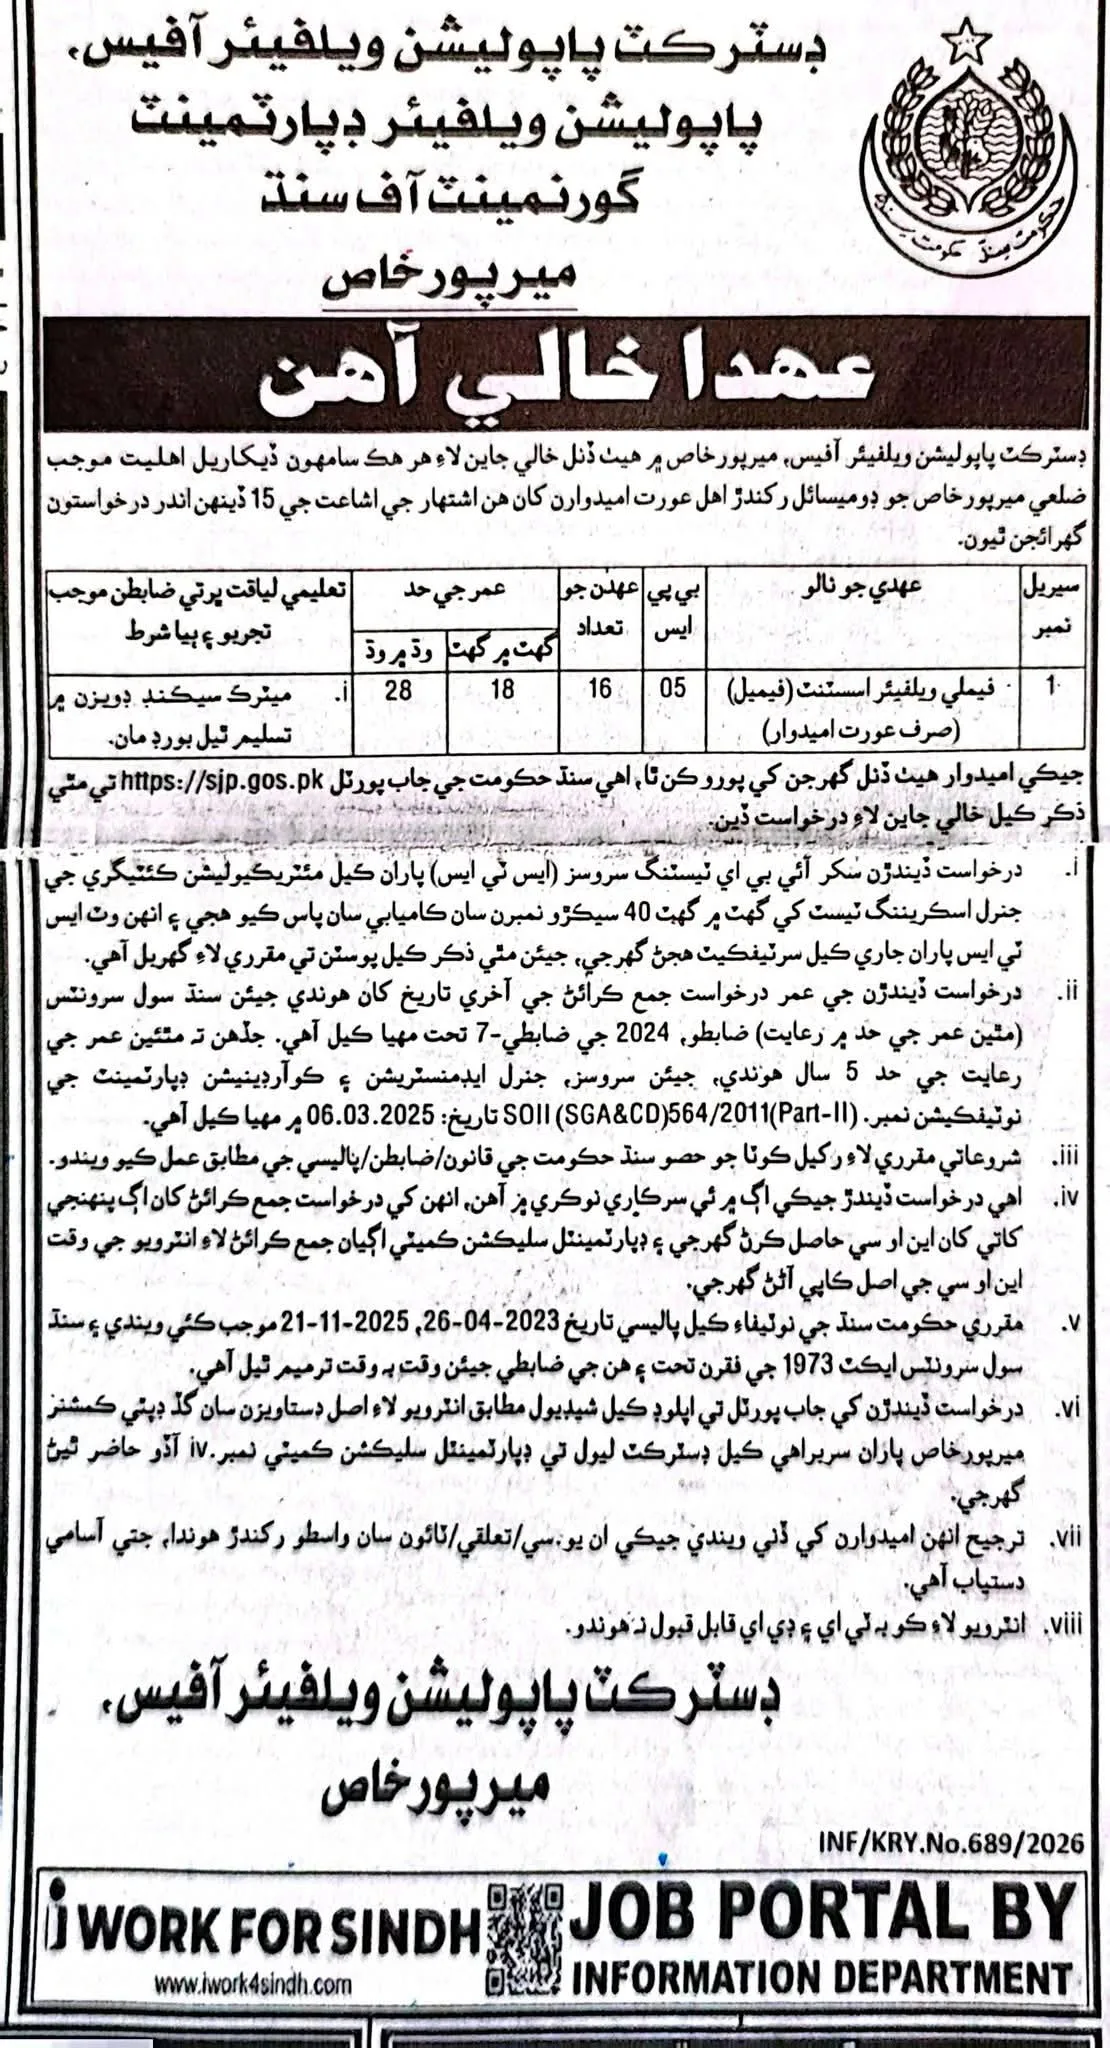 ڊسٽرڪٽ پاپوليشن ويلفيئر آفيس،
پاپوليشن ويلفيئر ڊپارٽمينٽ
گورنمينٽ آف سنڌ
ميرپورخاص
عهدا خالي آهن
ڊسٽرڪٽ پاپوليشن ويلفيئر آفيس، ميرپورخاص ۾ هيٺ ڏنل خالي جاين لاءِ هر هڪ سامهون ڏيکاريل اهليت موجب
ضلعي ميرپورخاص جو ڊوميسائل رکندڙ اهل عورت اميدوارن کان هن اشتهار جي اشاعت جي 15 ڏينهن اندر درخواستون
گهرائجن ٿيون.
سيريل نمبر
عهدي جو نالو
بي پي ايس
عهدن جو تعداد
عمر جي حد
گهٽ ۾ گهٽ
وڌ ۾ وڌ
تعليمي لياقت ڀرتي ضابطن موجب
تجربو ۽ ٻيا شرط
1
فيملي ويلفيئر اسسٽنٽ (فيميل)
(صرف عورت اميدوار)
05
16
18
28
i. ميٽرڪ سيڪنڊ ڊويزن ۾
تسليم ٿيل بورڊ مان.
جيڪي اميدوار هيٺ ڏنل گهرجن کي پورو ڪن ٿا، اهي سنڌ حڪومت جي جاب پورٽل https://sjp.gos.pk تي مٿي
ذڪر ڪيل خالي جاين لاءِ درخواست ڏين.
i. درخواست ڏيندڙن سکر آئي بي اي ٽيسٽنگ سروسز (ايس ٽي ايس) پاران ڪيل مئٽريڪيوليشن ڪئٽيگري جي
جنرل اسڪريننگ ٽيسٽ کي گهٽ ۾ گهٽ 40 سيڪڙو نمبرن سان ڪاميابي سان پاس ڪيو هجي ۽ انهن وٽ ايس
ٽي ايس پاران جاري ڪيل سرٽيفڪيٽ هجڻ گهرجي، جيئن مٿي ذڪر ڪيل پوسٽن تي مقرري لاءِ گهربل آهي.
ii. درخواست ڏيندڙن جي عمر درخواست جمع ڪرائڻ جي آخري تاريخ کان هوندي جيئن سنڌ سول سرونٽس
(مٿين عمر جي حد ۾ رعايت) ضابطو، 2024 جي ضابطي-7 تحت مهيا ڪيل آهي. جڏهن ته مٿئين عمر جي
رعايت جي حد 5 سال هوندي، جيئن سروسز، جنرل ايڊمنسٽريشن ۽ ڪوآرڊينيشن ڊپارٽمينٽ جي
نوٽيفڪيشن نمبر. SOII (SGA&CD)564/2011(Part-II) تاريخ: 06.03.2025 ۾ مهيا ڪيل آهي.
iii. شروعاتي مقرري لاءِ رکيل ڪوٽا جو حصو سنڌ حڪومت جي قانون/ضابطن/پاليسي جي مطابق عمل ڪيو ويندو.
iv. اهي درخواست ڏيندڙ جيڪي اڳ ۾ ئي سرڪاري نوڪري ۾ آهن، انهن کي درخواست جمع ڪرائڻ کان اڳ پنهنجي
کاتي کان اين او سي حاصل ڪرڻ گهرجي ۽ ڊپارٽمينٽل سليڪشن ڪميٽي اڳيان جمع ڪرائڻ لاءِ انٽرويو جي وقت
اين او سي جي اصل ڪاپي آڻڻ گهرجي.
v. مقرري حڪومت سنڌ جي نوٽيفاءِ ڪيل پاليسي تاريخ 2023-04-26، 2025-11-21 موجب ڪئي ويندي ۽ سنڌ
سول سرونٽس ايڪٽ 1973 جي فقرن تحت ۽ هن جي ضابطي جيئن وقت به وقت ترميم ٿيل آهي.
vi. درخواست ڏيندڙن کي جاب پورٽل تي اپلوڊ ڪيل شيڊيول مطابق انٽرويو لاءِ اصل دستاويزن سان گڏ ڊپٽي ڪمشنر
ميرپورخاص پاران سربراهي ڪيل ڊسٽرڪٽ ليول تي ڊپارٽمينٽل سليڪشن ڪميٽي نمبر.iv آڏو حاضر ٿيڻ
گهرجي.
vii. ترجيح انهن اميدوارن کي ڏني ويندي جيڪي ان يو.سي/تعلقي/ٽائون سان واسطو رکندڙ هوندا، جتي آسامي
دستياب آهي.
viii. انٽرويو لاءِ ڪو به ٽي اي ۽ ڊي اي قابل قبول نه هوندو.
ڊسٽرڪٽ پاپوليشن ويلفيئر آفيس،
ميرپورخاص
INF/KRY.No.689/2026
i WORK FOR SINDH
www.iwork4sindh.com
JOB PORTAL BY
INFORMATION DEPARTMENT